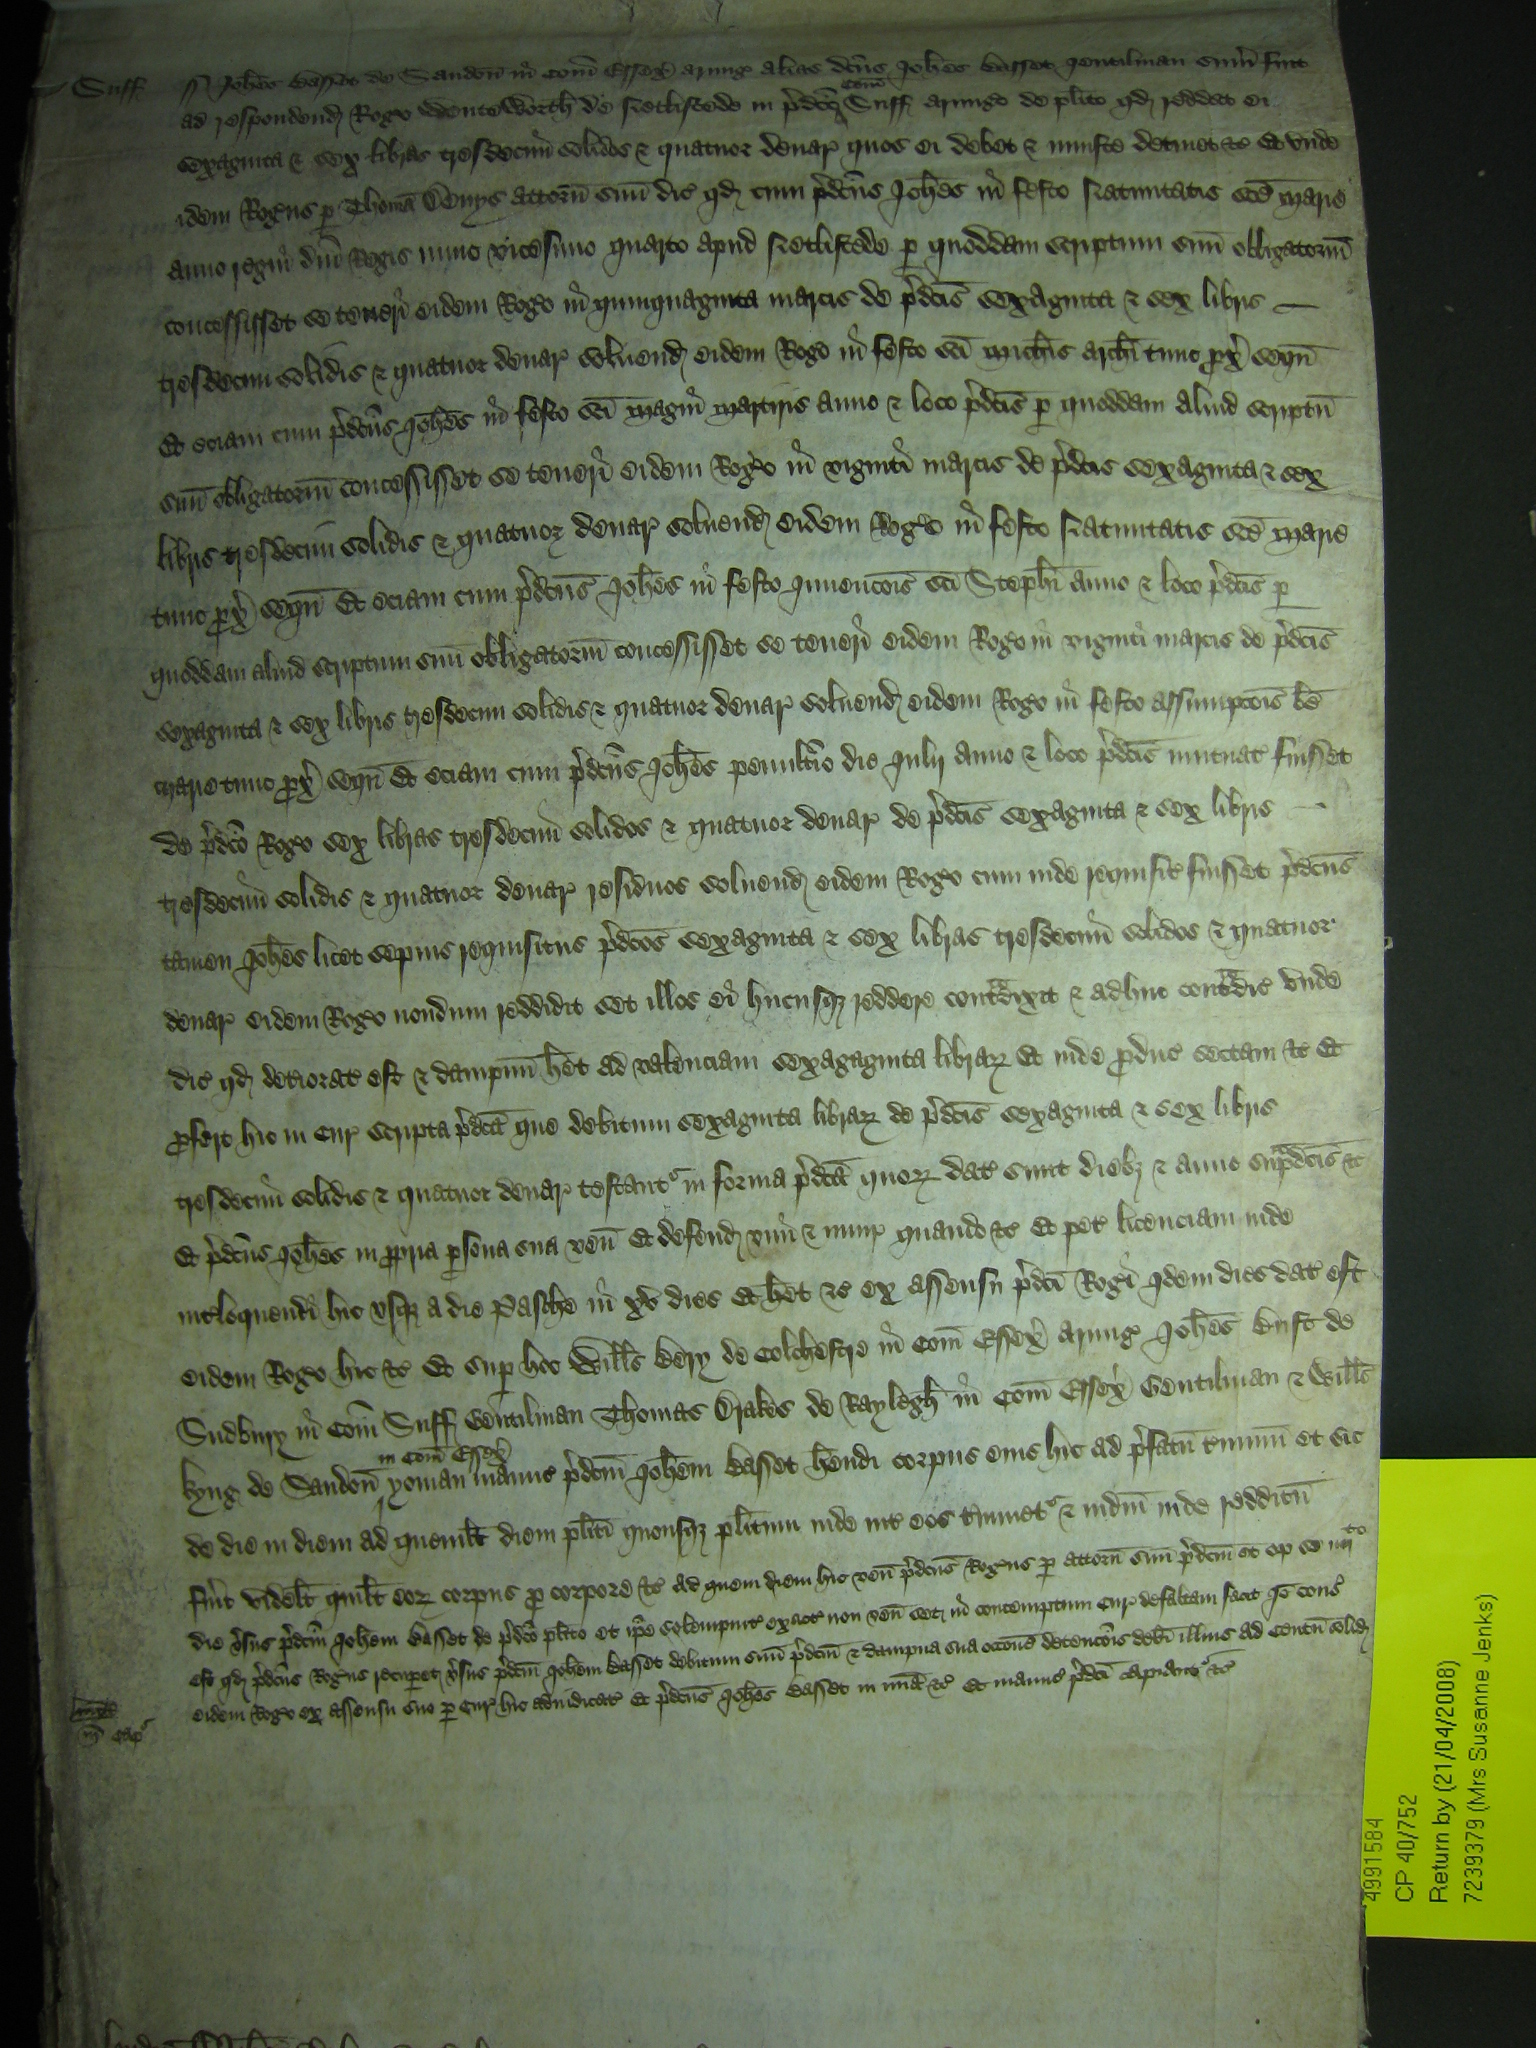 Suff ss Johes Basset de Sandon in Com Essex armig alias dcus Johes Basset Gentilman sum fuit
ad respondend Rogo Wenteworth de Netlistede in pdco Com Suff armigo de plito qd reddat ei
sexaginta & sex libras tresdecim solidos & quatuor denar quos ei debet & iniuste detinet &c Et unde
idem Rogus p Thomā Denys attorn suū dic qd cum pdcus Johes in festo Natiuitatis sce Marie
anno regni dni Regis nunc vicesimo quarto apud Netlistede p quoddam scriptum suū obligatoriū
concessisset se teneri eidem Rogo in quinquaginta marcis de pdcis sexaginta & sex libris
tresdecim solidis & quatuor denar soluend eidem Rogo in festo sci Michis archi tunc px sequn
Et eciam cum pdcus Johes in festo sci Magni Martiris anno & loco pdcis p quoddam aliud scriptū
suū obligatoriū concessisset se teneri eidem Rogo in viginti marcis de pdcis sexaginta & sex
libris tresdecim solidis & quatuor denar soluend eidem Rogo in festo Natiuitatis sce Marie
tunc px sequn Et eciam cum pdcus Johes in festo Inuencois sci Stephi anno & loco pdcis p
quoddam aliud scriptum suū obligatoriū concessisset se teneri eidem Rogo in viginti marcis de pdcis
sexaginta & sex libris tresdecim solidis & quatuor denar soluend eidem Rogo in festo assumpcois be
Marie tunc px sequn Et eciam cum pdcus Johes penultio die Julij anno & loco pdcis mutuat fuisset
de pdco Rogo sex libras tresdecim solidos & quatuor denar de pdcis sexaginta & sex libris
tresdecim solidis & quatuor denar residuos soluend eidem Rogo cum inde requisit fuisset pdcus
tamen Johes licet sepius requisitus pdcos sexaginta & sex libras tresdecim solidos & quatuor
denar eidem Rogo nondum reddidit set illos ei hucusq reddere contradixit & adhuc contradic Unde
dic qd deteriorat est & dampnū het ad valenciam sexagaginta librar Et inde produc sectam &c Et
profert hic in Cur scripta pdcā que debitum sexaginta librar de pdcis sexaginta & sex libris
tresdecim solidis & quatuor denar testant in forma pdcā quor dat sunt dieb & anno supradcis &c
Et pdcus Johes in ppria psona sua ven Et defend vim & iniur quando &c Et pet licenciam inde
intloquendi hic usq a die Pasche in xv dies Et het &c ex assensu pdci Rogi idem dies dat est
eidem Rogo hic &c Et sup hoc Willus Bery de Colchestre in Com Essex armig Johes Bust de
Sudbury in Com Suff Gentilman Thomas Drakes de Raylegh in Com Essex Gentilman & Willus
kyng de Sandon in Com Essex yoman manuc pdcm Johem Basset hendi corpus eius hic ad pfatū tminū et sic
de die in diem ad quemlt diem pliti quousq plitum inde int eos tminet & iudm inde redditū
fuit videlt quilt eor corpus p corpore &c Ad quem diem hic ven pdcus Rogus p attorn suū pdcm et op se iiij to
die vsus pdcm Johem Basset de pdco plito et ipe solempnit exact non ven set in contemptum Cur defaltam facit Io cons
est qd pdcus Rogus recuperet vsus pdcm Johem Basset debitum suū pdcm & dampna sua occone detencois debi illius ad Centū solid
eidem Rogo ex assensu suo p Cur hic adiudicat Et pdcus Johes Basset in mia &c Et manuc pdci capiant &c
mia
cap
4991584
CP 40/752
Return by (21/04/2008)
7239379 (Mrs Susanne Jenks)